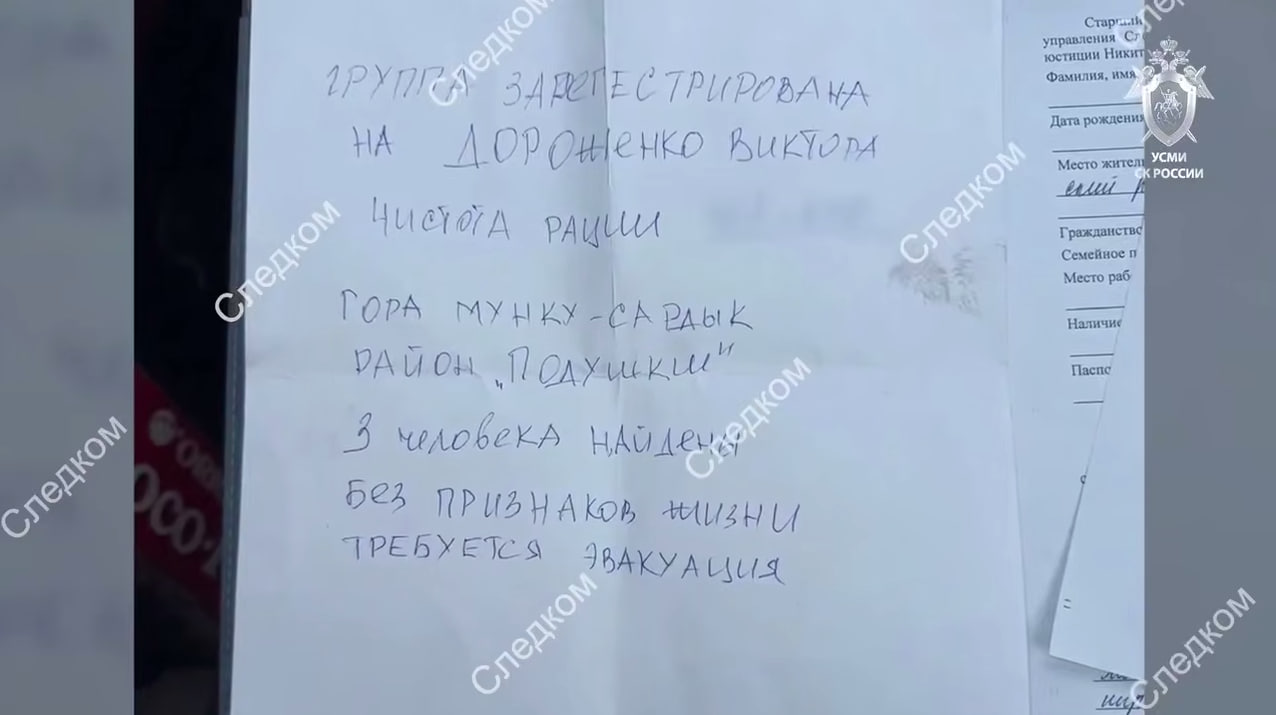 ГРУППА ЗАРЕГЕСТРИРОВАНА
НА ДОРОЖЕНКО ВИКТОРА
ЧИСТОТА РАЦИИ
ГОРА МУНКУ-САРДЫК
РАЙОН „ПОДУШКИ"
3 человека НАЙДЕНЫ
БЕЗ ПРИЗНАКОВ ЖИЗНИ
ТРЕБУЕТСЯ ЭВАКУАЦИЯ
управления
юстиции
Фамилия,
Дата рождения
Место
Гражданство
Семейное
Место
Наличие
УСМИ
СК РОССИИ
Следком
Следком
Следком
Следком
Следком
Следком
Следком
Следком
Следком